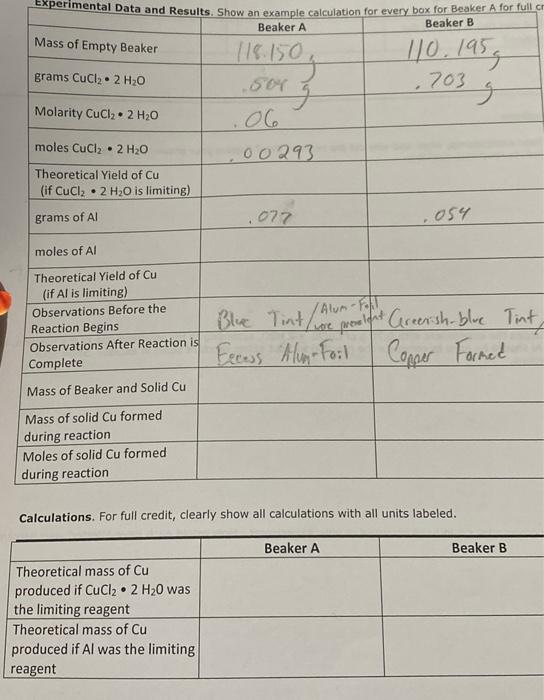 Experimental Data and Results. Show an example calculation for every box for Beaker A for full cr
Beaker A Beaker B
Mass of Empty Beaker 118.150 g 110.195 g
grams CuCl₂ • 2 H₂O g .703 g
Molarity CuCl₂ • 2 H₂O .06
moles CuCl₂ • 2 H₂O .00293
Theoretical Yield of Cu
(if CuCl₂ • 2 H₂O is limiting)
grams of Al .077 .054
moles of Al
Theoretical Yield of Cu
(if Al is limiting)
Observations Before the
Reaction Begins Blue Tint / Alum-Foil more Greenish-blue Tint,
Observations After Reaction is
Complete Excess Alum-Foil Copper Formed
Mass of Beaker and Solid Cu
Mass of solid Cu formed
during reaction
Moles of solid Cu formed
during reaction
Calculations. For full credit, clearly show all calculations with all units labeled.
Beaker A Beaker B
Theoretical mass of Cu
produced if CuCl₂ • 2 H₂O was
the limiting reagent
Theoretical mass of Cu
produced if Al was the limiting
reagent